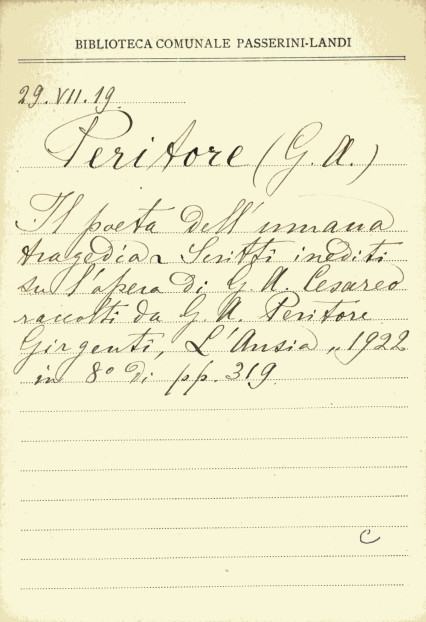 BIBLIOTECA COMUNALE PASSERINI-LANDI
29.VII.19
Peritore (G. A.)
Il poeta dell'umana
tragedia ~ Scritti inediti
su l'opera di G. A. Cesareo
raccolti da G. A. Peritore
Girgenti, L'Ansia, 1922
in 8º di pp. 319
C